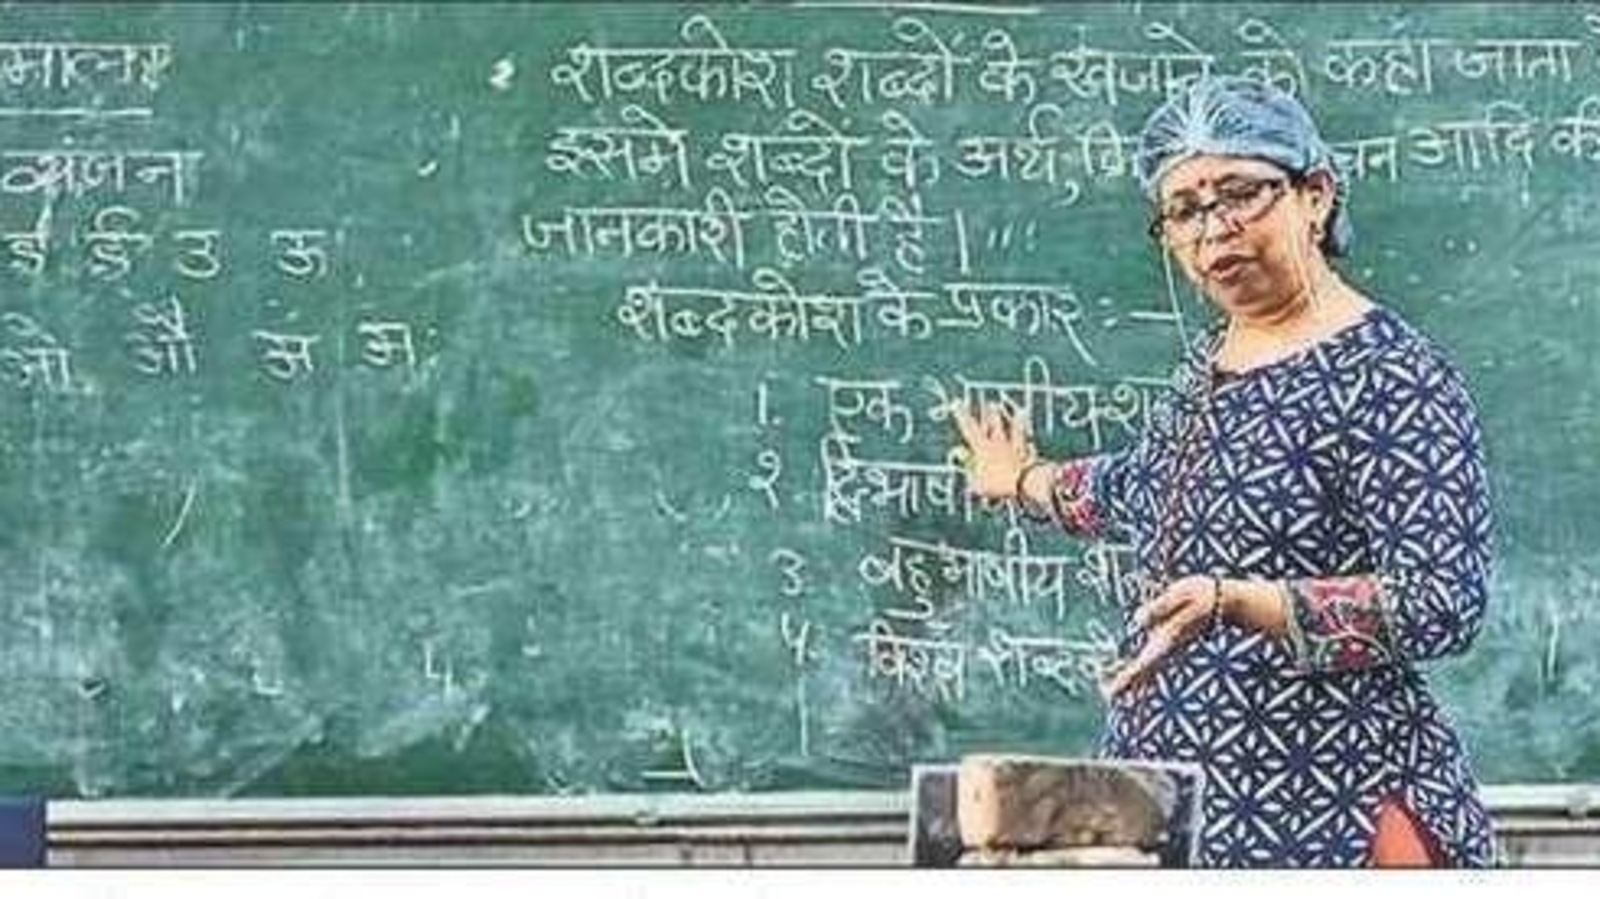 माला
व्यंजन
इ ई उ ऊ
ओ औ अं अः
शब्दकोश शब्दों के खजाने को कहा जाता
इसमे शब्दों के अर्थ, आदि की
जानकारी होती है।
शब्दकोश के प्रकार :-
1. एक भाषीय
२ द्विभाषी
3 बहुभाषीय
४. विश्व